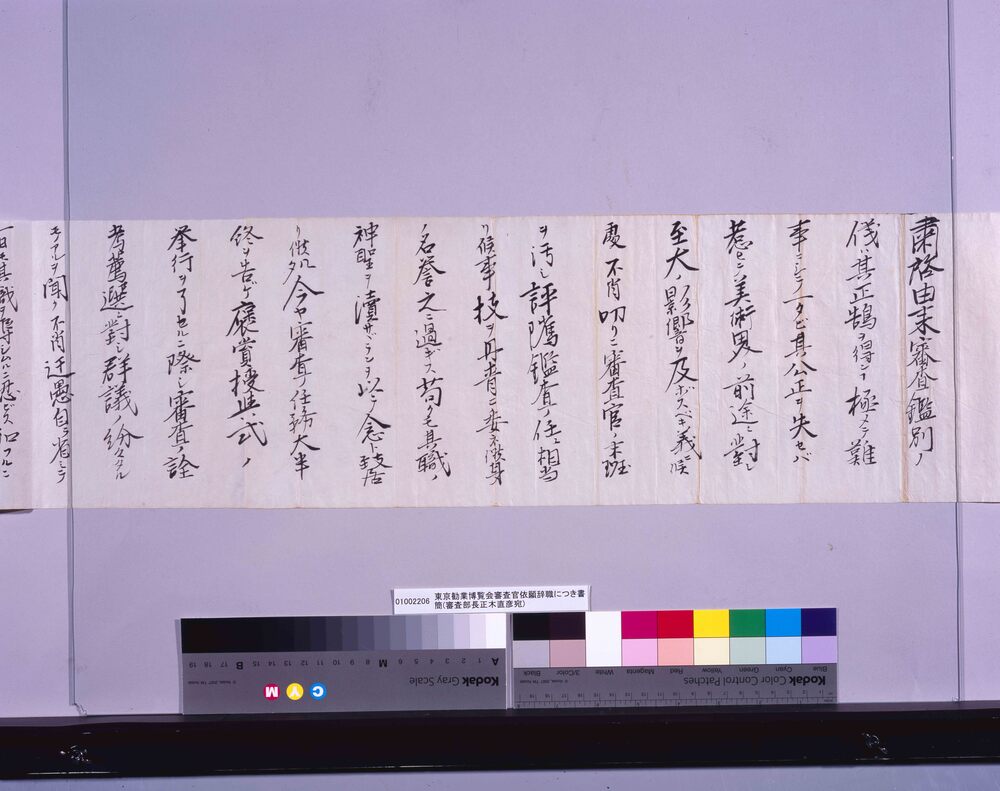 粛啓由来審査鑑別ノ
儀ハ其正鵠ヲ得ルヿ極メテ難
事ニシテ一タビ其公正ヲ失セバ
惹ヒテ美術界ノ前途ニ対シ
至大ノ影響ヲ及ボスベキ義ニ候
処不肖叨リニ審査官ノ末班
ヲ汚シ評隲鑑査ノ任ニ相当
リ候事技ヲ丹青ニ委ネ候身
ノ名誉之ニ過ギズ苟クモ其職ノ
神聖ヲ涜サヾランヿヲ以テ念ト致居
リ候ヒタル今ヤ審査ノ任務大半
終ヲ告ゲ褒賞授与式ノ
挙行ヲ了セルニ際シ審査ノ詮
考薦選ニ対シ群議ノ紛々タル
モノアルヲ聞ク不肖迂愚自ラ省ミテ
一日モ其職ヲ
01002206
東京勧業博覧会審査官依願辞職につき書
簡(審査部長正木直彦宛)
Kodak Gray Scale
C Y M
A 1 2 3 4 5 6 M 8 9 10 11 12 13 14 15 B 17 18 19
Kodak Color Control Patches
Blue Cyan Green Yellow Red Magenta White 3/Color Black